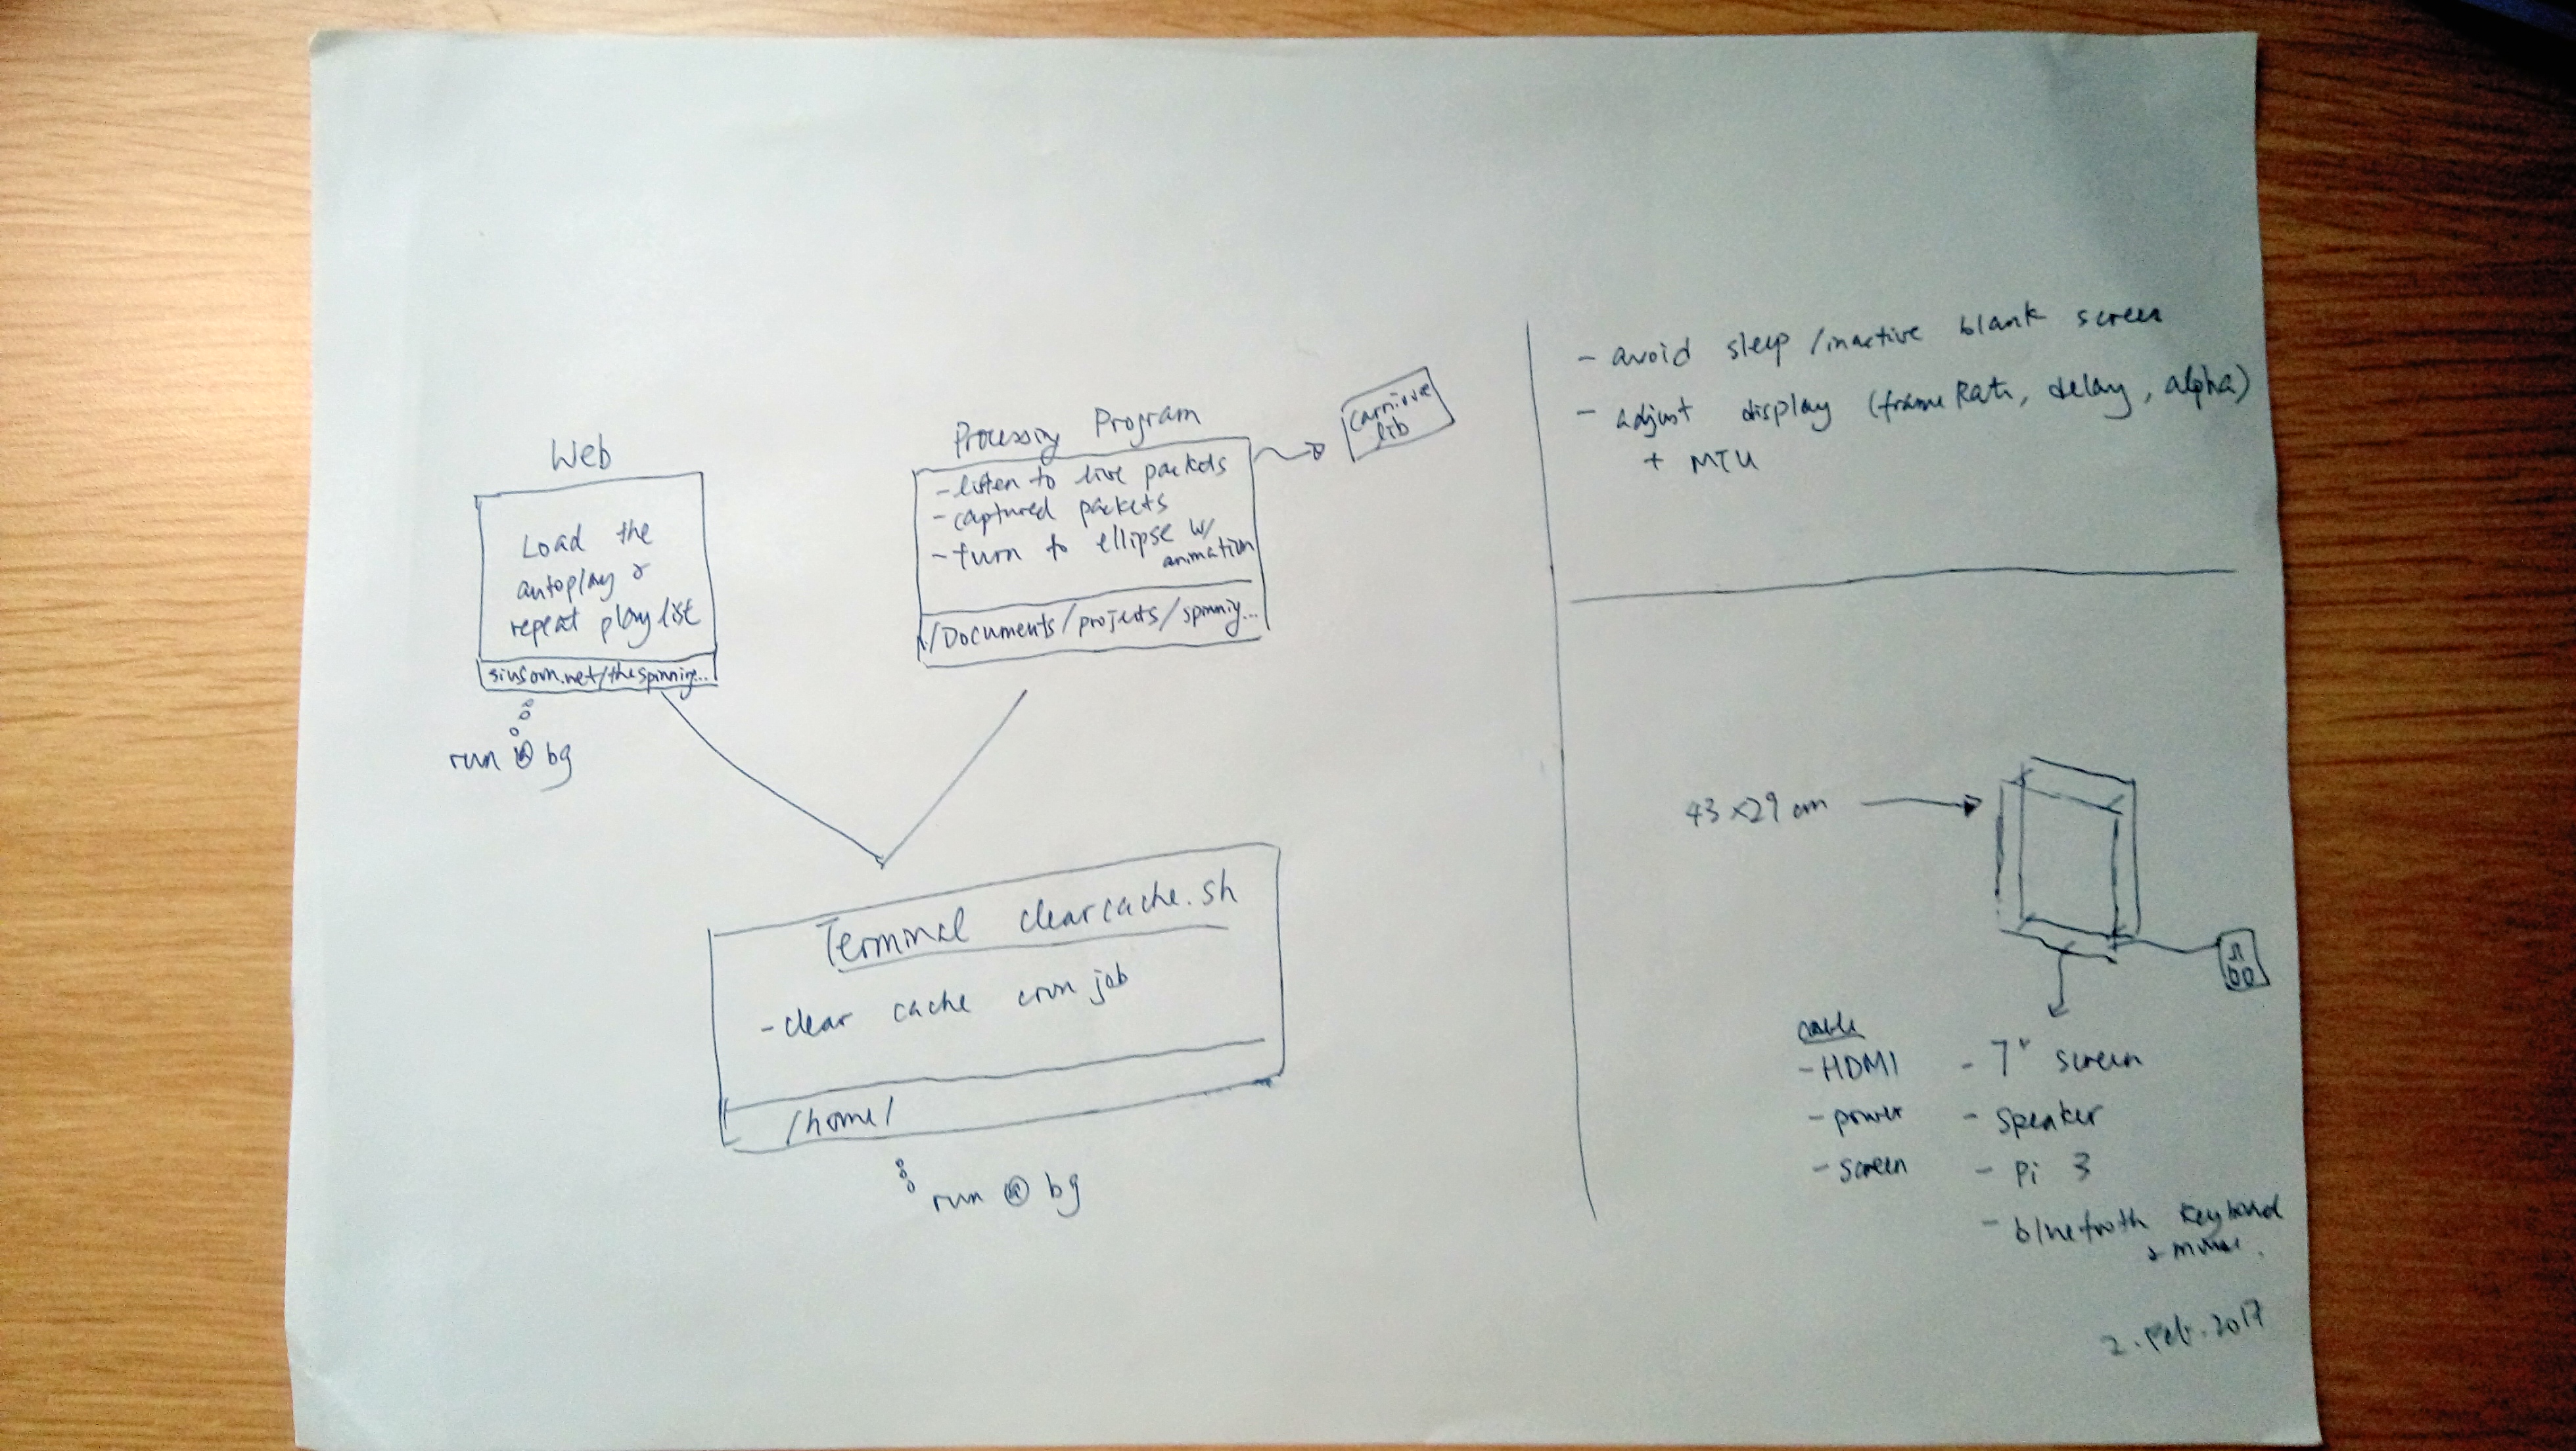 Web
Load the
autoplay &
repeat playlist
siusoon.net/thespinning...
run @ bg
Processing Program
- listen to live packets
- captured packets
- turn to ellipse w/
animation
/Documents/projects/spinnig...
carnivore
lib
Terminal clearcache.sh
- clear cache cron job
/home/
run @ bg
- avoid sleep /inactive blank screen
- adjust display (frameRate, delay, alpha)
+ MTU
43 x 29 cm
cable
- HDMI
- power
- screen
- 7" screen
- speaker
- Pi 3
- bluetooth keyboard
& mouse.
2. Feb. 2017